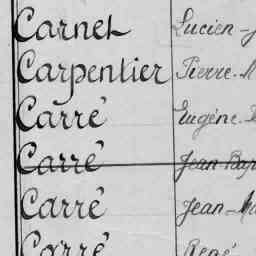 Carnet Lucien-
Carpentier Pierre-M
Carré Eugène
Carré Jean-Bap
Carré Jean-Ma
Carré René